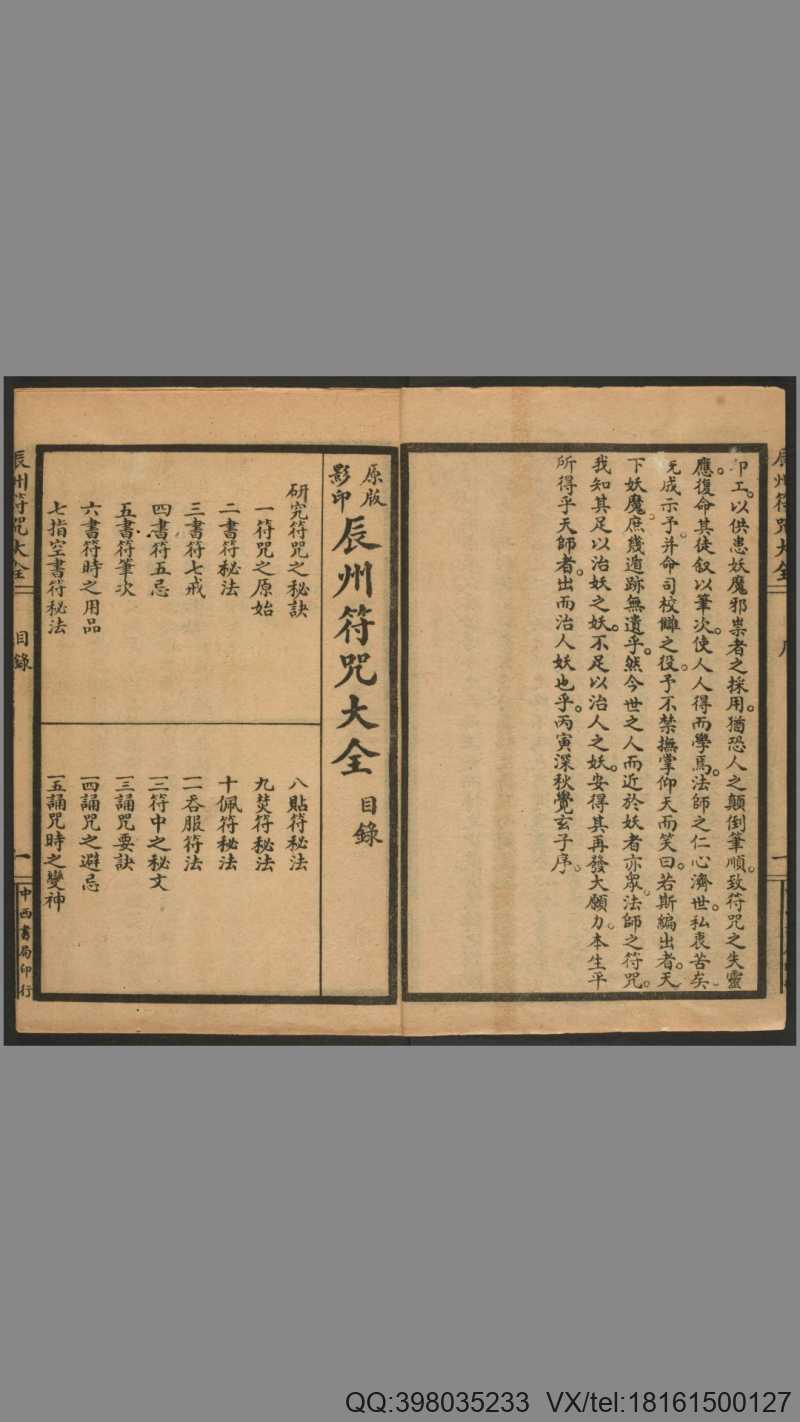 辰州符咒大全
印工。以供患妖魔邪祟者之採用。猶恐人之顛倒筆順。致符咒之失靈
應。復命其徒叙以筆次。使人人得而學焉。法師之仁心濟世。私衷苦矣。
既成示予。并命司校讎之役。予不禁撫掌仰天而笑曰。若斯編出者。天
下妖魔。庶幾遁跡無遺乎。然今世之人而近於妖者亦眾。法師之符咒。
我知其足以治妖之妖。不足以治人之妖。安得其再發大願力。本生平
所得乎天師者。出而治人妖也乎。丙寅深秋覺玄子序。
原版
影印
辰州符咒大全 目錄
研究符咒之秘訣
一符咒之原始
二書符秘法
三書符七戒
四書符五忌
五書符筆次
六書符時之用品
七指空書符秘法
八貼符秘法
九焚符秘法
十佩符秘法
一一吞服符法
一二符中之秘文
一三誦咒要訣
一四誦咒之避忌
一五誦咒時之變神
辰州符咒大全
目錄
一
中西書局印行
QQ:398035233 VX/tel:18161500127